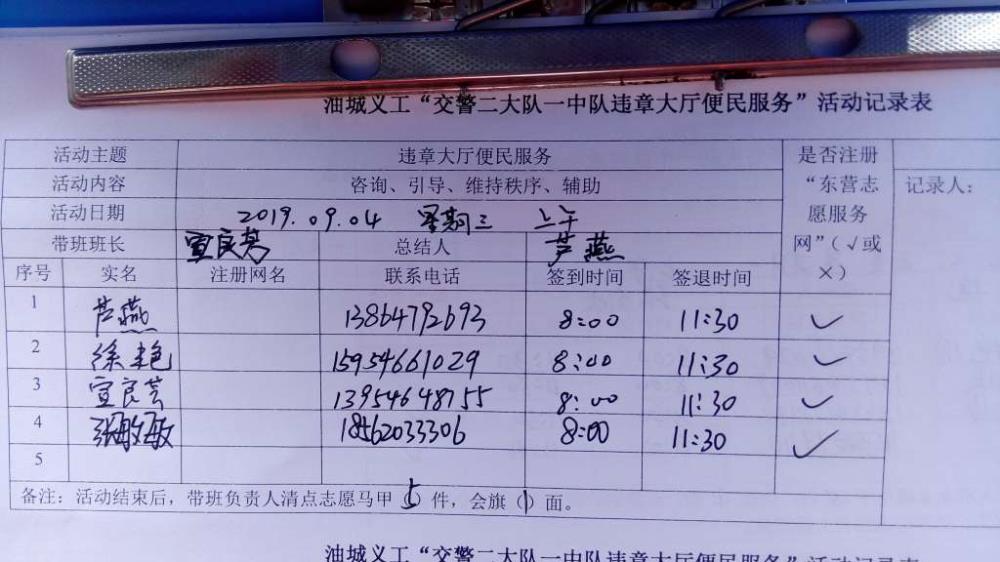 油城义工“交警二大队一中队违章大厅便民服务”活动记录表
活动主题 违章大厅便民服务 是否注册“东营志愿服务网”（√或×） 记录人：
活动内容 咨询、引导、维持秩序、辅助
活动日期 2019.09.04 星期三 上午
带班班长 宣良芸 总结人 芦燕
序号 实名 注册网名 联系电话 签到时间 签退时间
1 芦燕 13864792693 8:00 11:30 ✓
2 徐艳 15954661029 8:00 11:30 ✓
3 宣良芸 13954648755 8:00 11:30 ✓
4 张敏敏 18562033306 8:00 11:30 ✓
5
备注：活动结束后，带班负责人清点志愿马甲（5）件，会旗（1）面。
油城义工“交警二大队一中队违章大厅便民服务”活动记录表